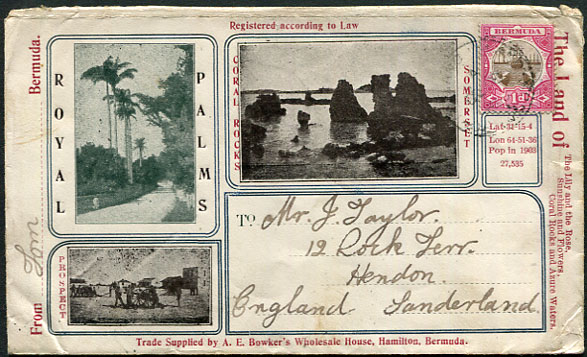 Registered according to Law
Bermuda.
ROYAL
PALMS
CORAL ROCKS
SOMERSET
BERMUDA
1D
The Land of
The Lily and the Rose,
Sunshine and Flowers,
Coral Rocks and Azure Waters.
Lat-32-15-4
Lon 64-51-36
Pop in 1903
27,535
TO Mr. J. Taylor.
12 Rock Terr.
Hendon.
England Sunderland.
PROSPECT.
From Tom
Trade Supplied by A. E. Bowker's Wholesale House, Hamilton, Bermuda.